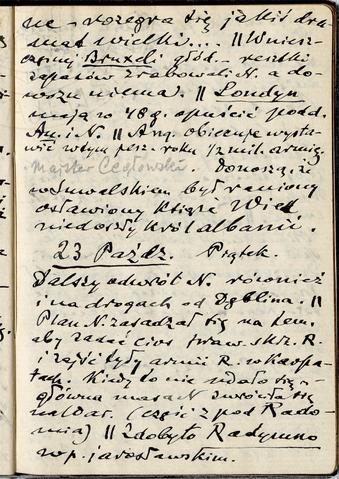 ne – rozegra się jakiś dra-
mat wielki... || W niesz-
czesnej Brukseli głód. – resztki
zapasów zrabowali N. a do-
wozu niema. || Londyn
mają w 48 g. opuścić podd.
Au. i N. || Ang. obiecuje wysta-
wić w tym jesz. roku 1/2 mil. armię.
Majster Cegłowski. Donoszą, że
w Suwalskiem był raniony
osławiony książe Wied
niedoszły król albanii.
23 Paźdz. Piątek.
Dalszy odwrót N. również
i na drogach od Dęblina. ||
Plan N. zasadzał się na tem,
aby zadać cios praw. skrz. R.
i zajść tyły armii R. w Karpa-
tach. Kiedy to nie udało się –
główna masa N zwróciła się
na War. (część z pod Rado-
mia) || Zdobyto Radymno
w p. jarosławskim.